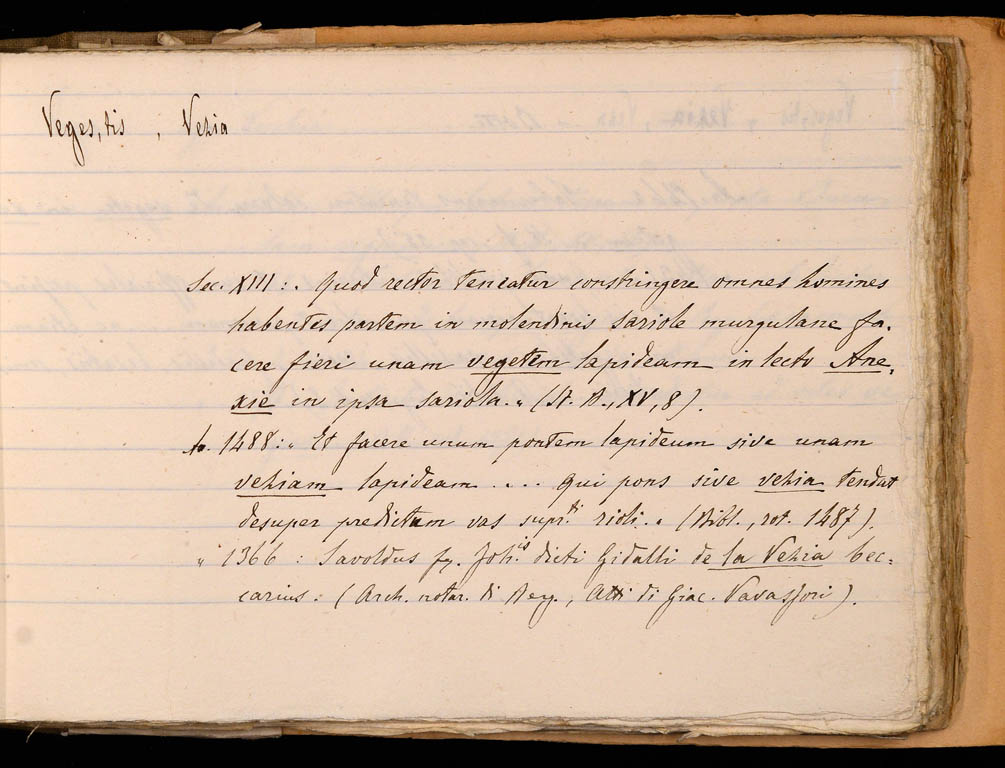 Veges, tis , Vezia
Sec. XIII: „ Quod rector teneatur constringere omnes homines
habentes partem in molendinis sariole murgulane fa-
cere fieri unam vegetem lapideam in lecto Ane-
xie in ipsa sariola. „ (St. B., XV, 8).
A. 1488: „ Et facere unum pontem lapideum sive unam
veziam lapideam .... qui pons sive vezia tendat
desuper predictum vas supr.ti rioli. „ (Bibl., rot. 1487).
„ 1366 : Savoldus fq. Joh.is dicti Gidalli de la Vezia bec-
carius. (Arch. notar. di Berg., Atti di Giac. Vavassori).